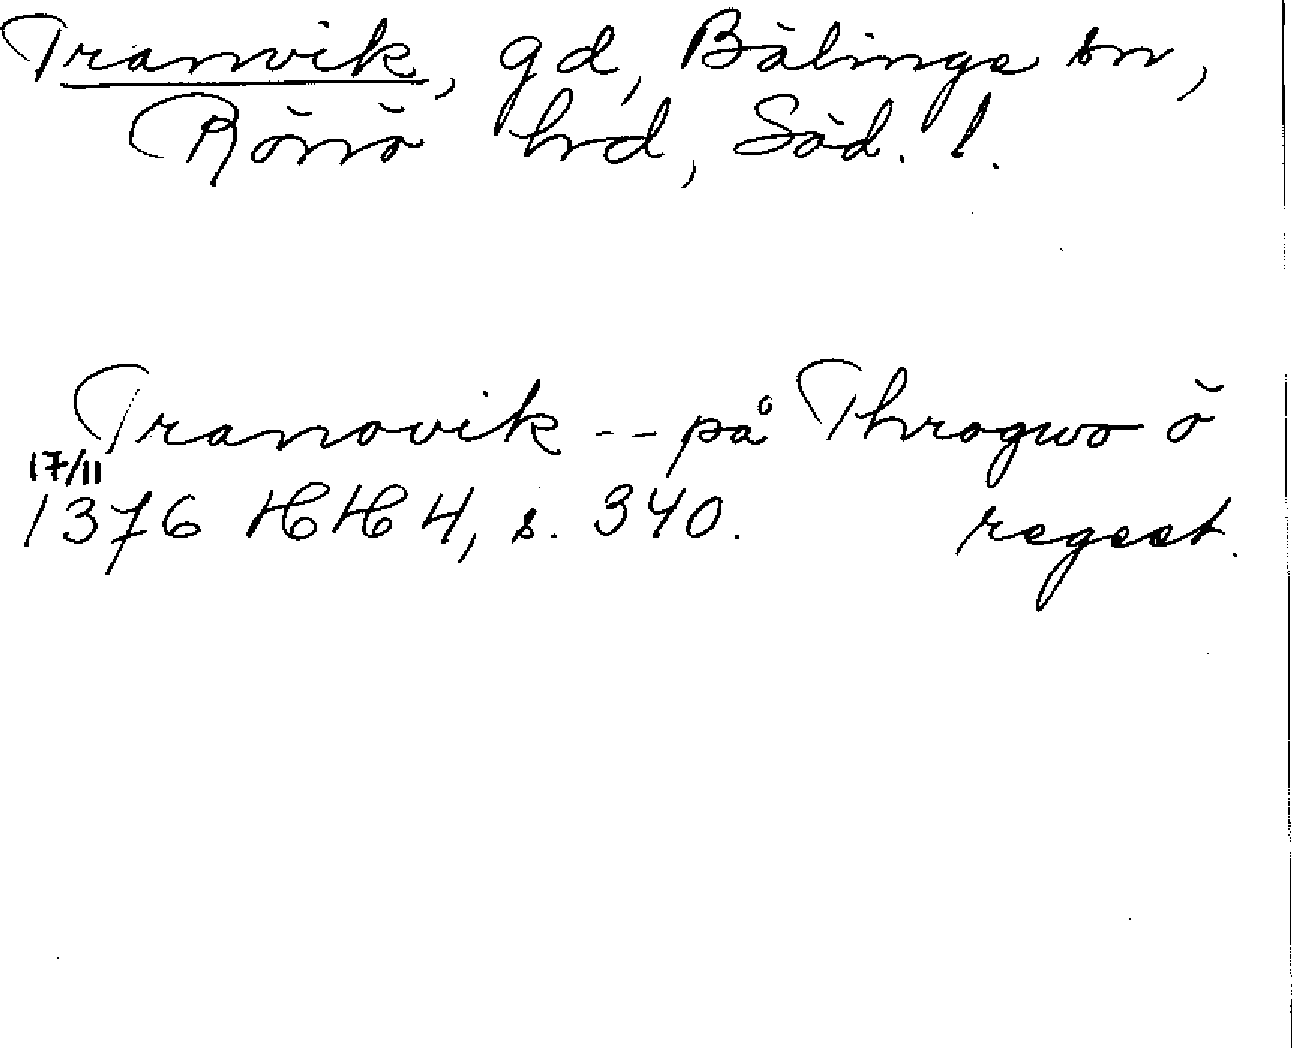 Tranvik, gd, Bälinge sn,
Rönö hrd, Söd. l.
Tranovik -- på Throgwo ö
17/11
1376 HH 4, s. 340. regest.